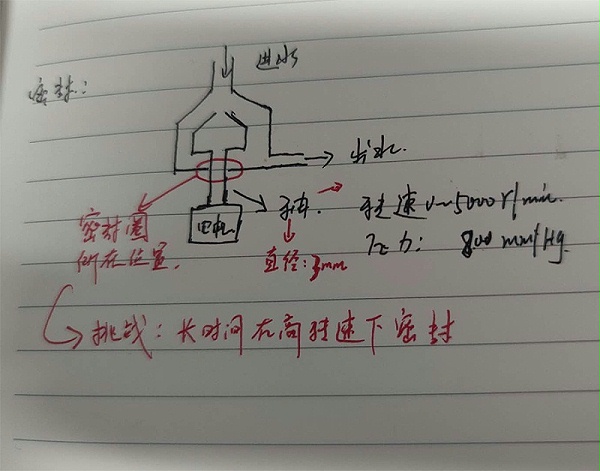 密封:
进水
出水.
轴.
转速 0~5000 r/min.
压力: 800 mm/Hg.
电机
直径:3mm
密封圈
所在位置.
挑战: 长时间在高转速下密封